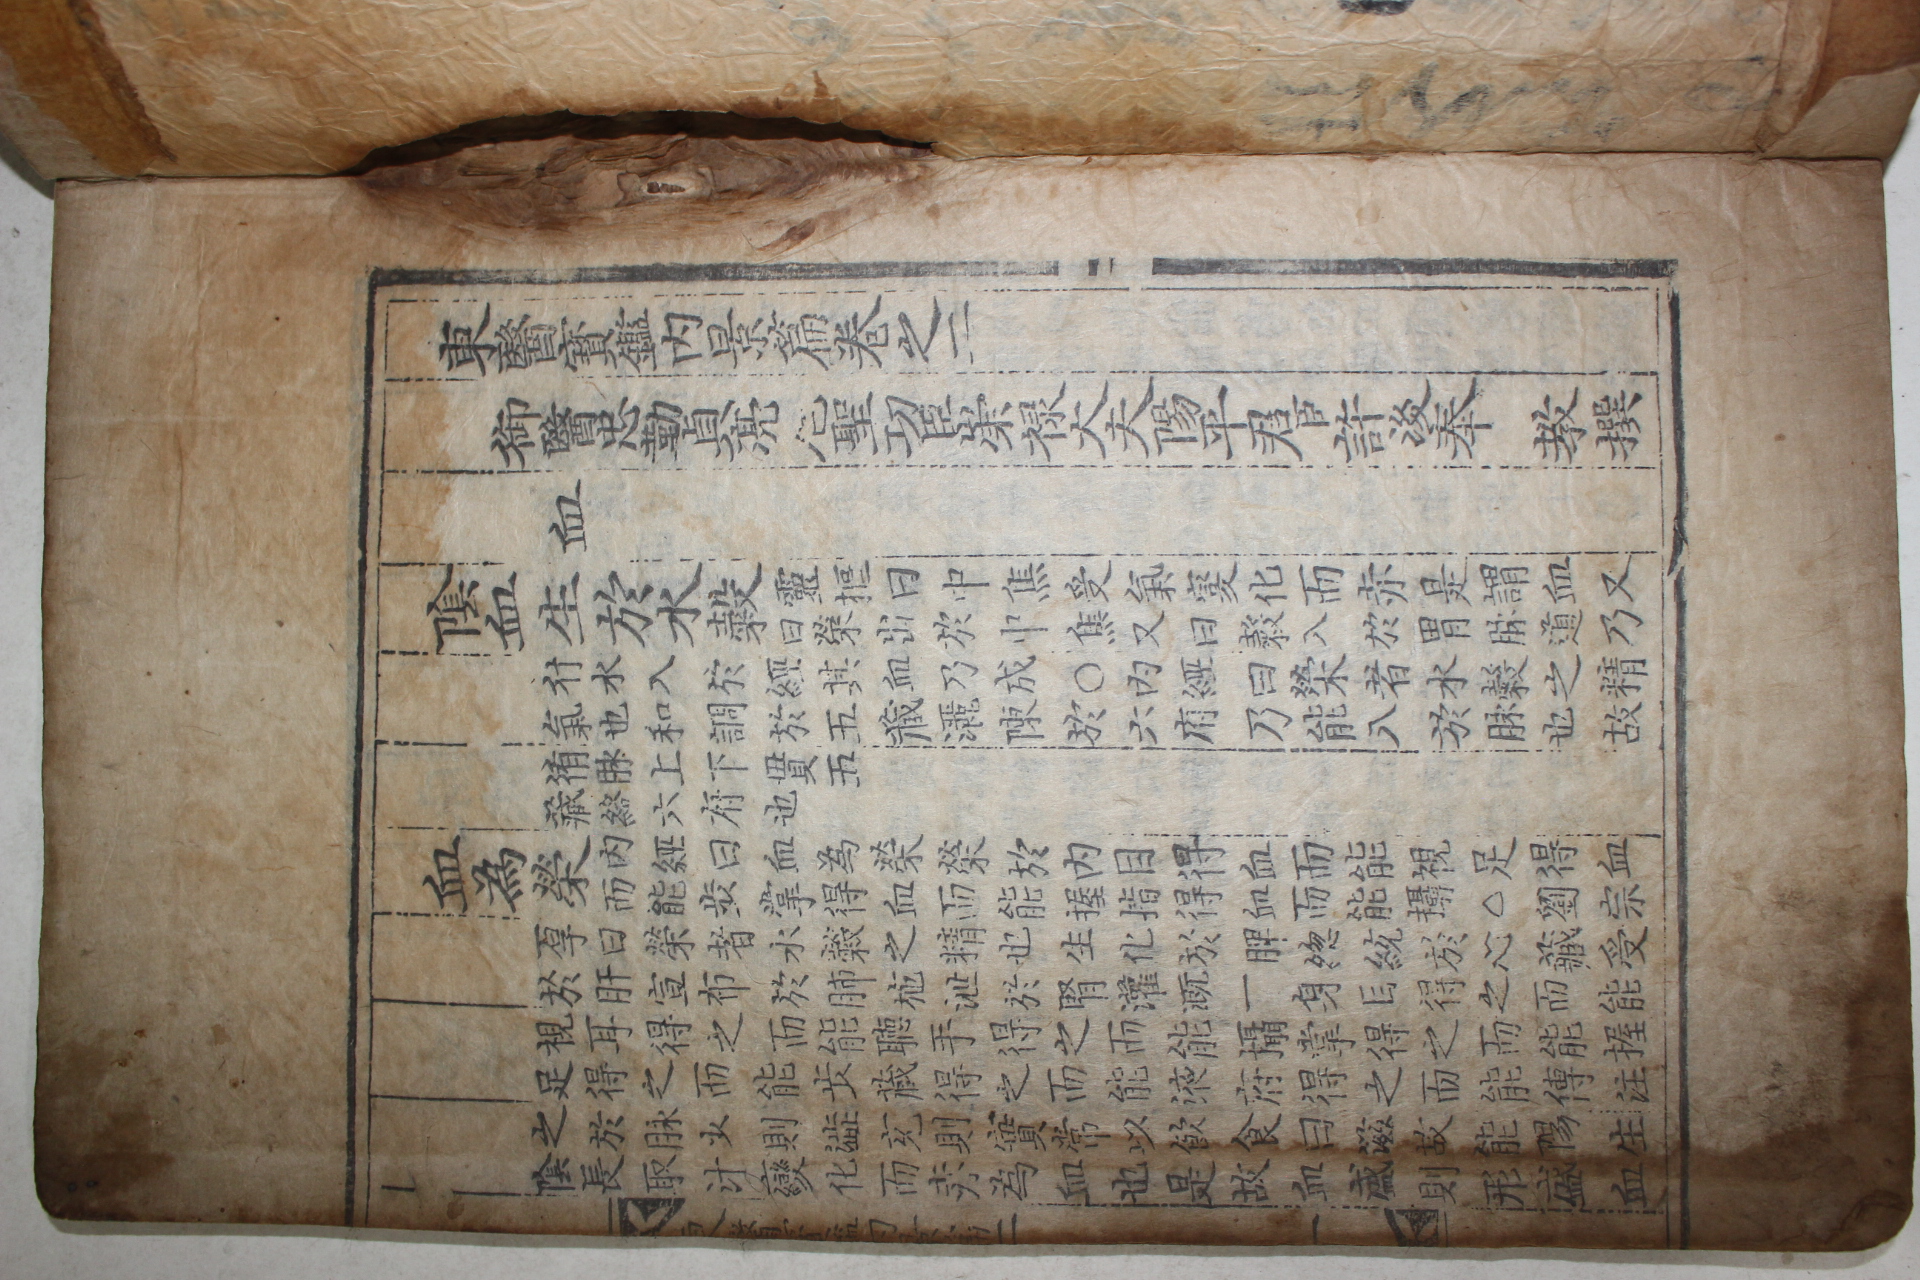 東醫寶鑑內景篇卷之二
御醫忠勤貞亮扈聖功臣崇祿大夫陽平君臣許浚奉 教撰
血
陰血生於水穀
靈樞曰中焦受氣變化而赤是謂血又
曰榮出於中焦又曰穀入於胃脉道乃
行水入於經其血乃成○內經曰榮者水穀之精
氣也和調於五藏灑陳於六府乃能入於脉也故
循脉上下貫五
藏絡六府也
血為榮
內經曰血為榮榮於內目得血而能視足得血
而能步掌得血而能握指得血而能攝△劉宗
厚曰榮者水穀之精也生化於脾緫統於心藏受
於肝宣布於肺施泄於腎灌溉一身目得之而能
視耳得之而能聽手得之而能攝掌得之而能握
足得之而能步藏得之而能液府得之而能傳注
之於脉少則澁充則實常以飲食日滋故能陽生
陰長取汁變化而赤為血也是故血盛則形盛血
東醫寶鑑內景篇二
一